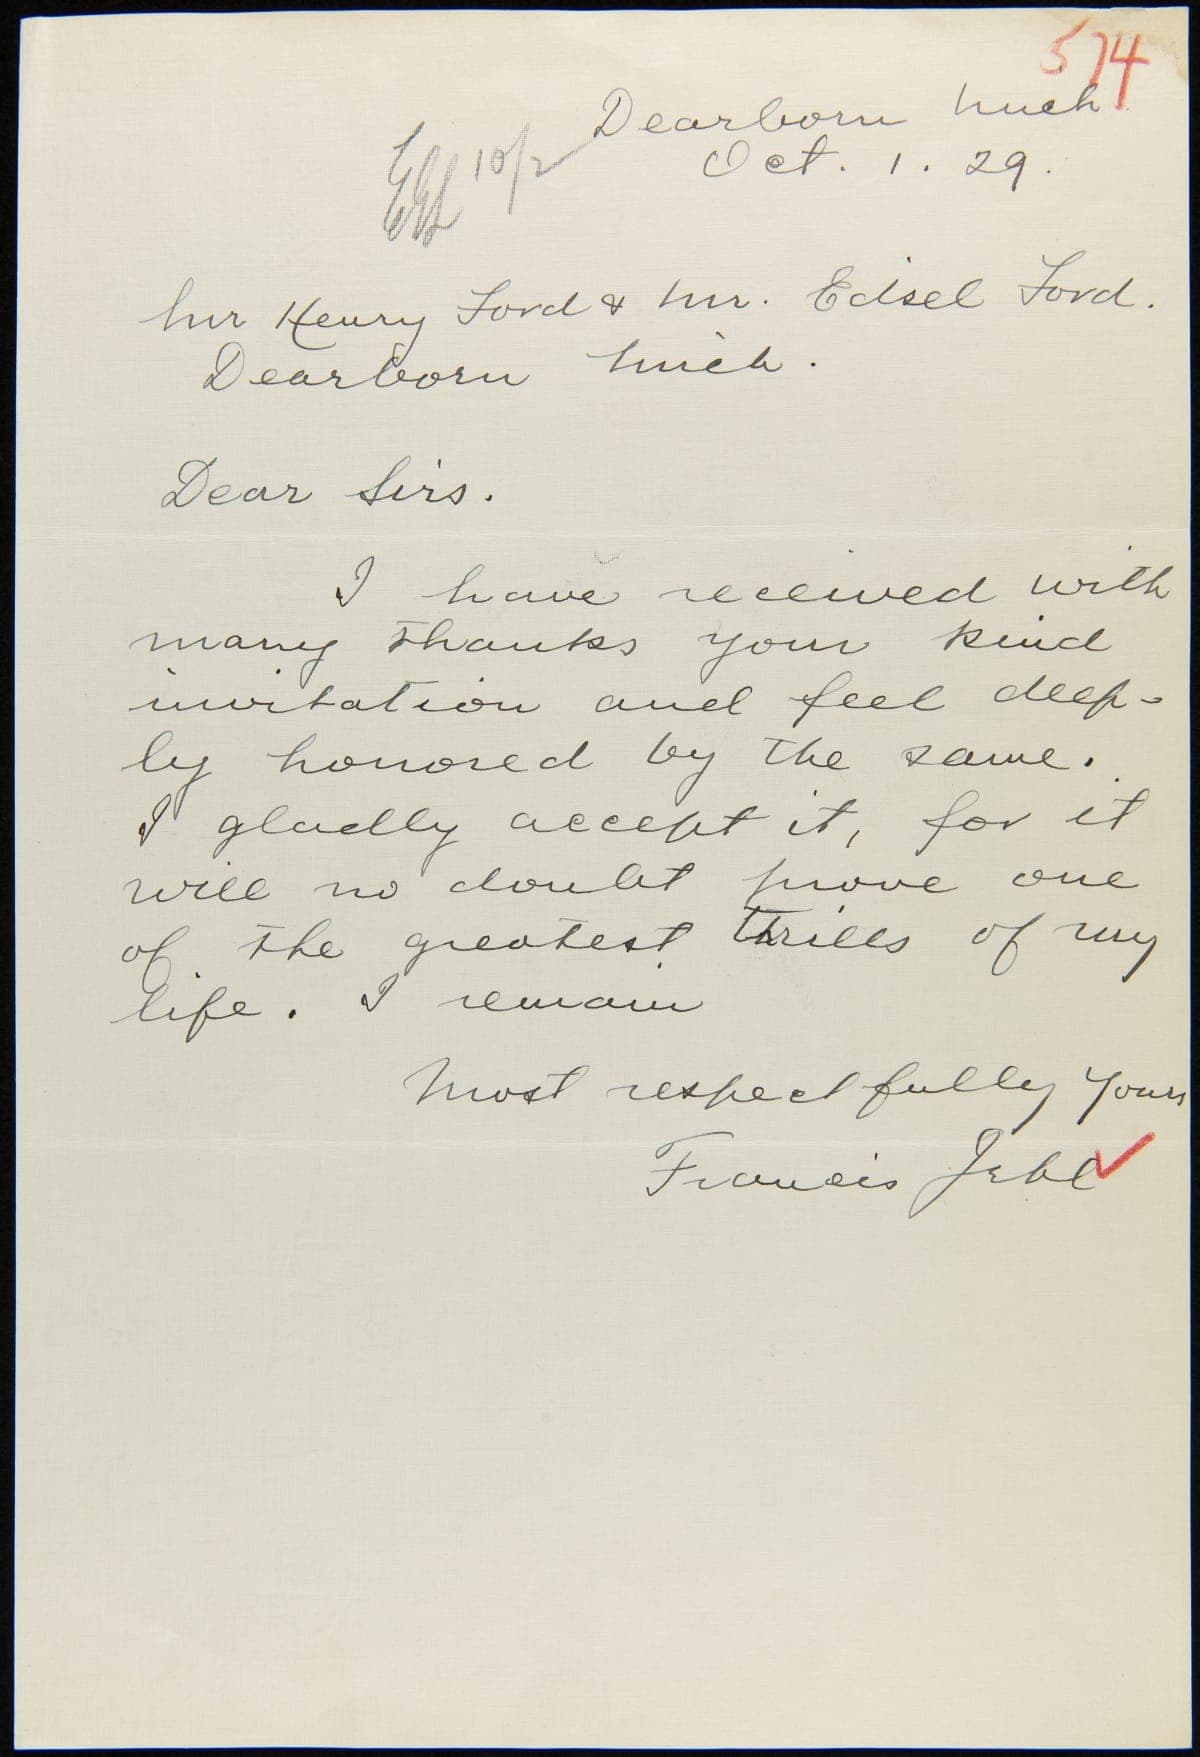 574
Dearborn Mich
Oct. 1. 29.
10/2
Mr Henry Ford & Mr. Edsel Ford.
Dearborn Mich.
Dear Sirs.
I have received with
many thanks your kind
invitation and feel deep-
ly honored by the same.
I gladly accept it, for it
will no doubt prove one
of the greatest thrills of my
life. I remain
Most respectfully yours
Francis Jehl